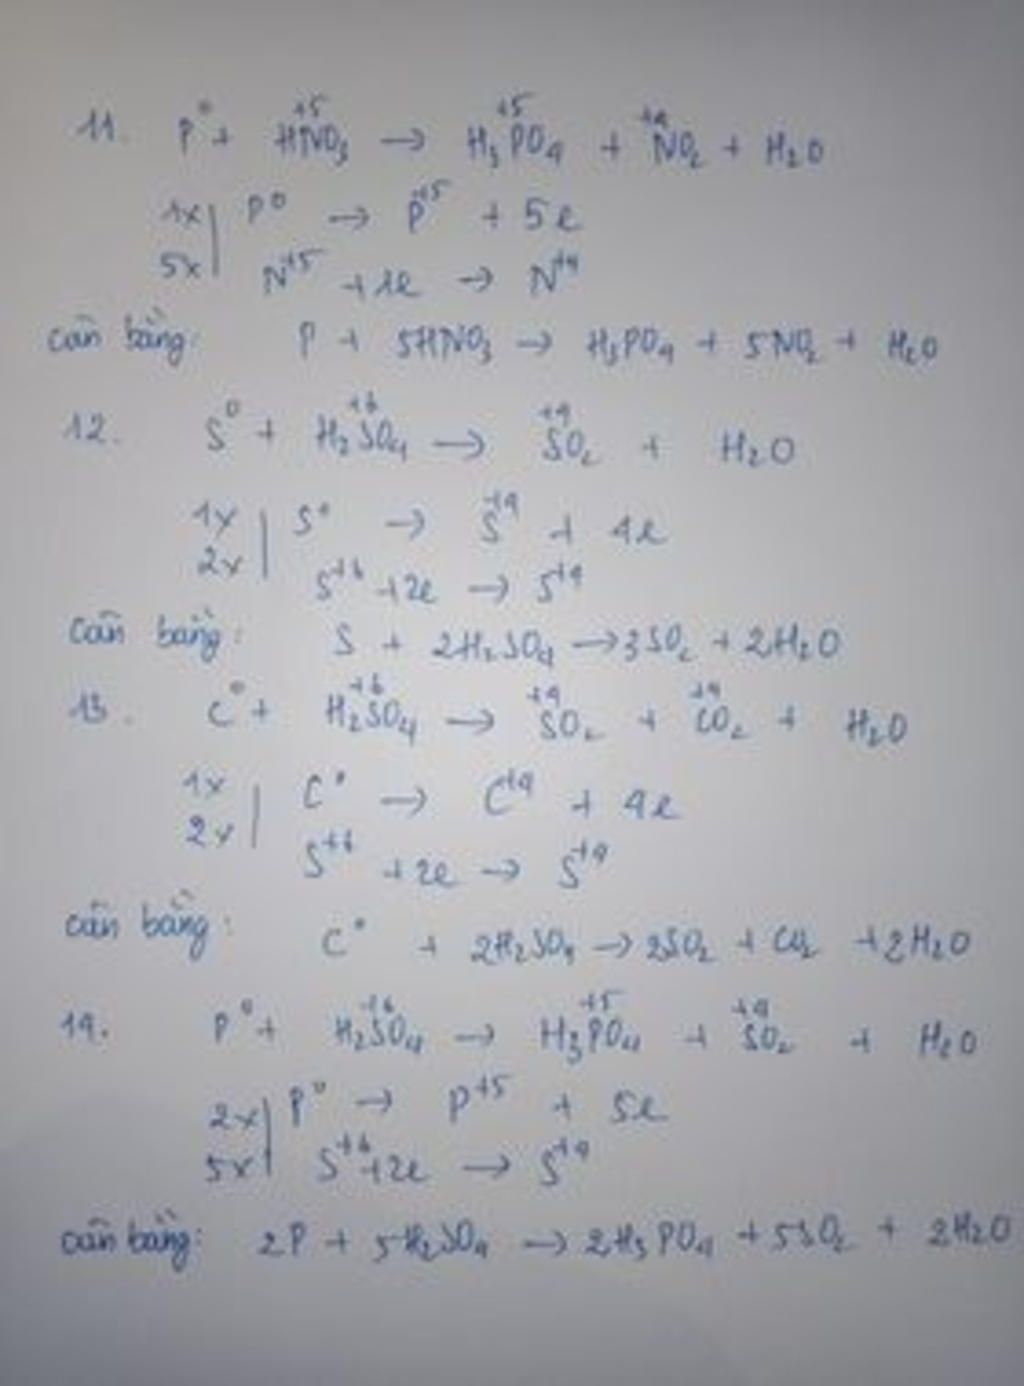 11. P⁰ + HN⁺⁵O₃ → H₃P⁺⁵O₄ + N⁺⁴O₂ + H₂O
1x | P⁰ → P⁺⁵ + 5e
5x | N⁺⁵ + 1e → N⁺⁴
cân bằng: P + 5HNO₃ → H₃PO₄ + 5NO₂ + H₂O
12. S⁰ + H₂S⁺⁶O₄ → S⁺⁴O₂ + H₂O
1x | S⁰ → S⁺⁴ + 4e
2x | S⁺⁶ + 2e → S⁺⁴
cân bằng: S + 2H₂SO₄ → 3SO₂ + 2H₂O
13. C⁰ + H₂S⁺⁶O₄ → S⁺⁴O₂ + C⁺⁴O₂ + H₂O
1x | C⁰ → C⁺⁴ + 4e
2x | S⁺⁶ + 2e → S⁺⁴
cân bằng: C⁰ + 2H₂SO₄ → 2SO₂ + CO₂ + 2H₂O
14. P⁰ + H₂S⁺⁶O₄ → H₃P⁺⁵O₄ + S⁺⁴O₂ + H₂O
2x | P⁰ → P⁺⁵ + 5e
5x | S⁺⁶ + 2e → S⁺⁴
cân bằng: 2P + 5H₂SO₄ → 2H₃PO₄ + 5SO₂ + 2H₂O